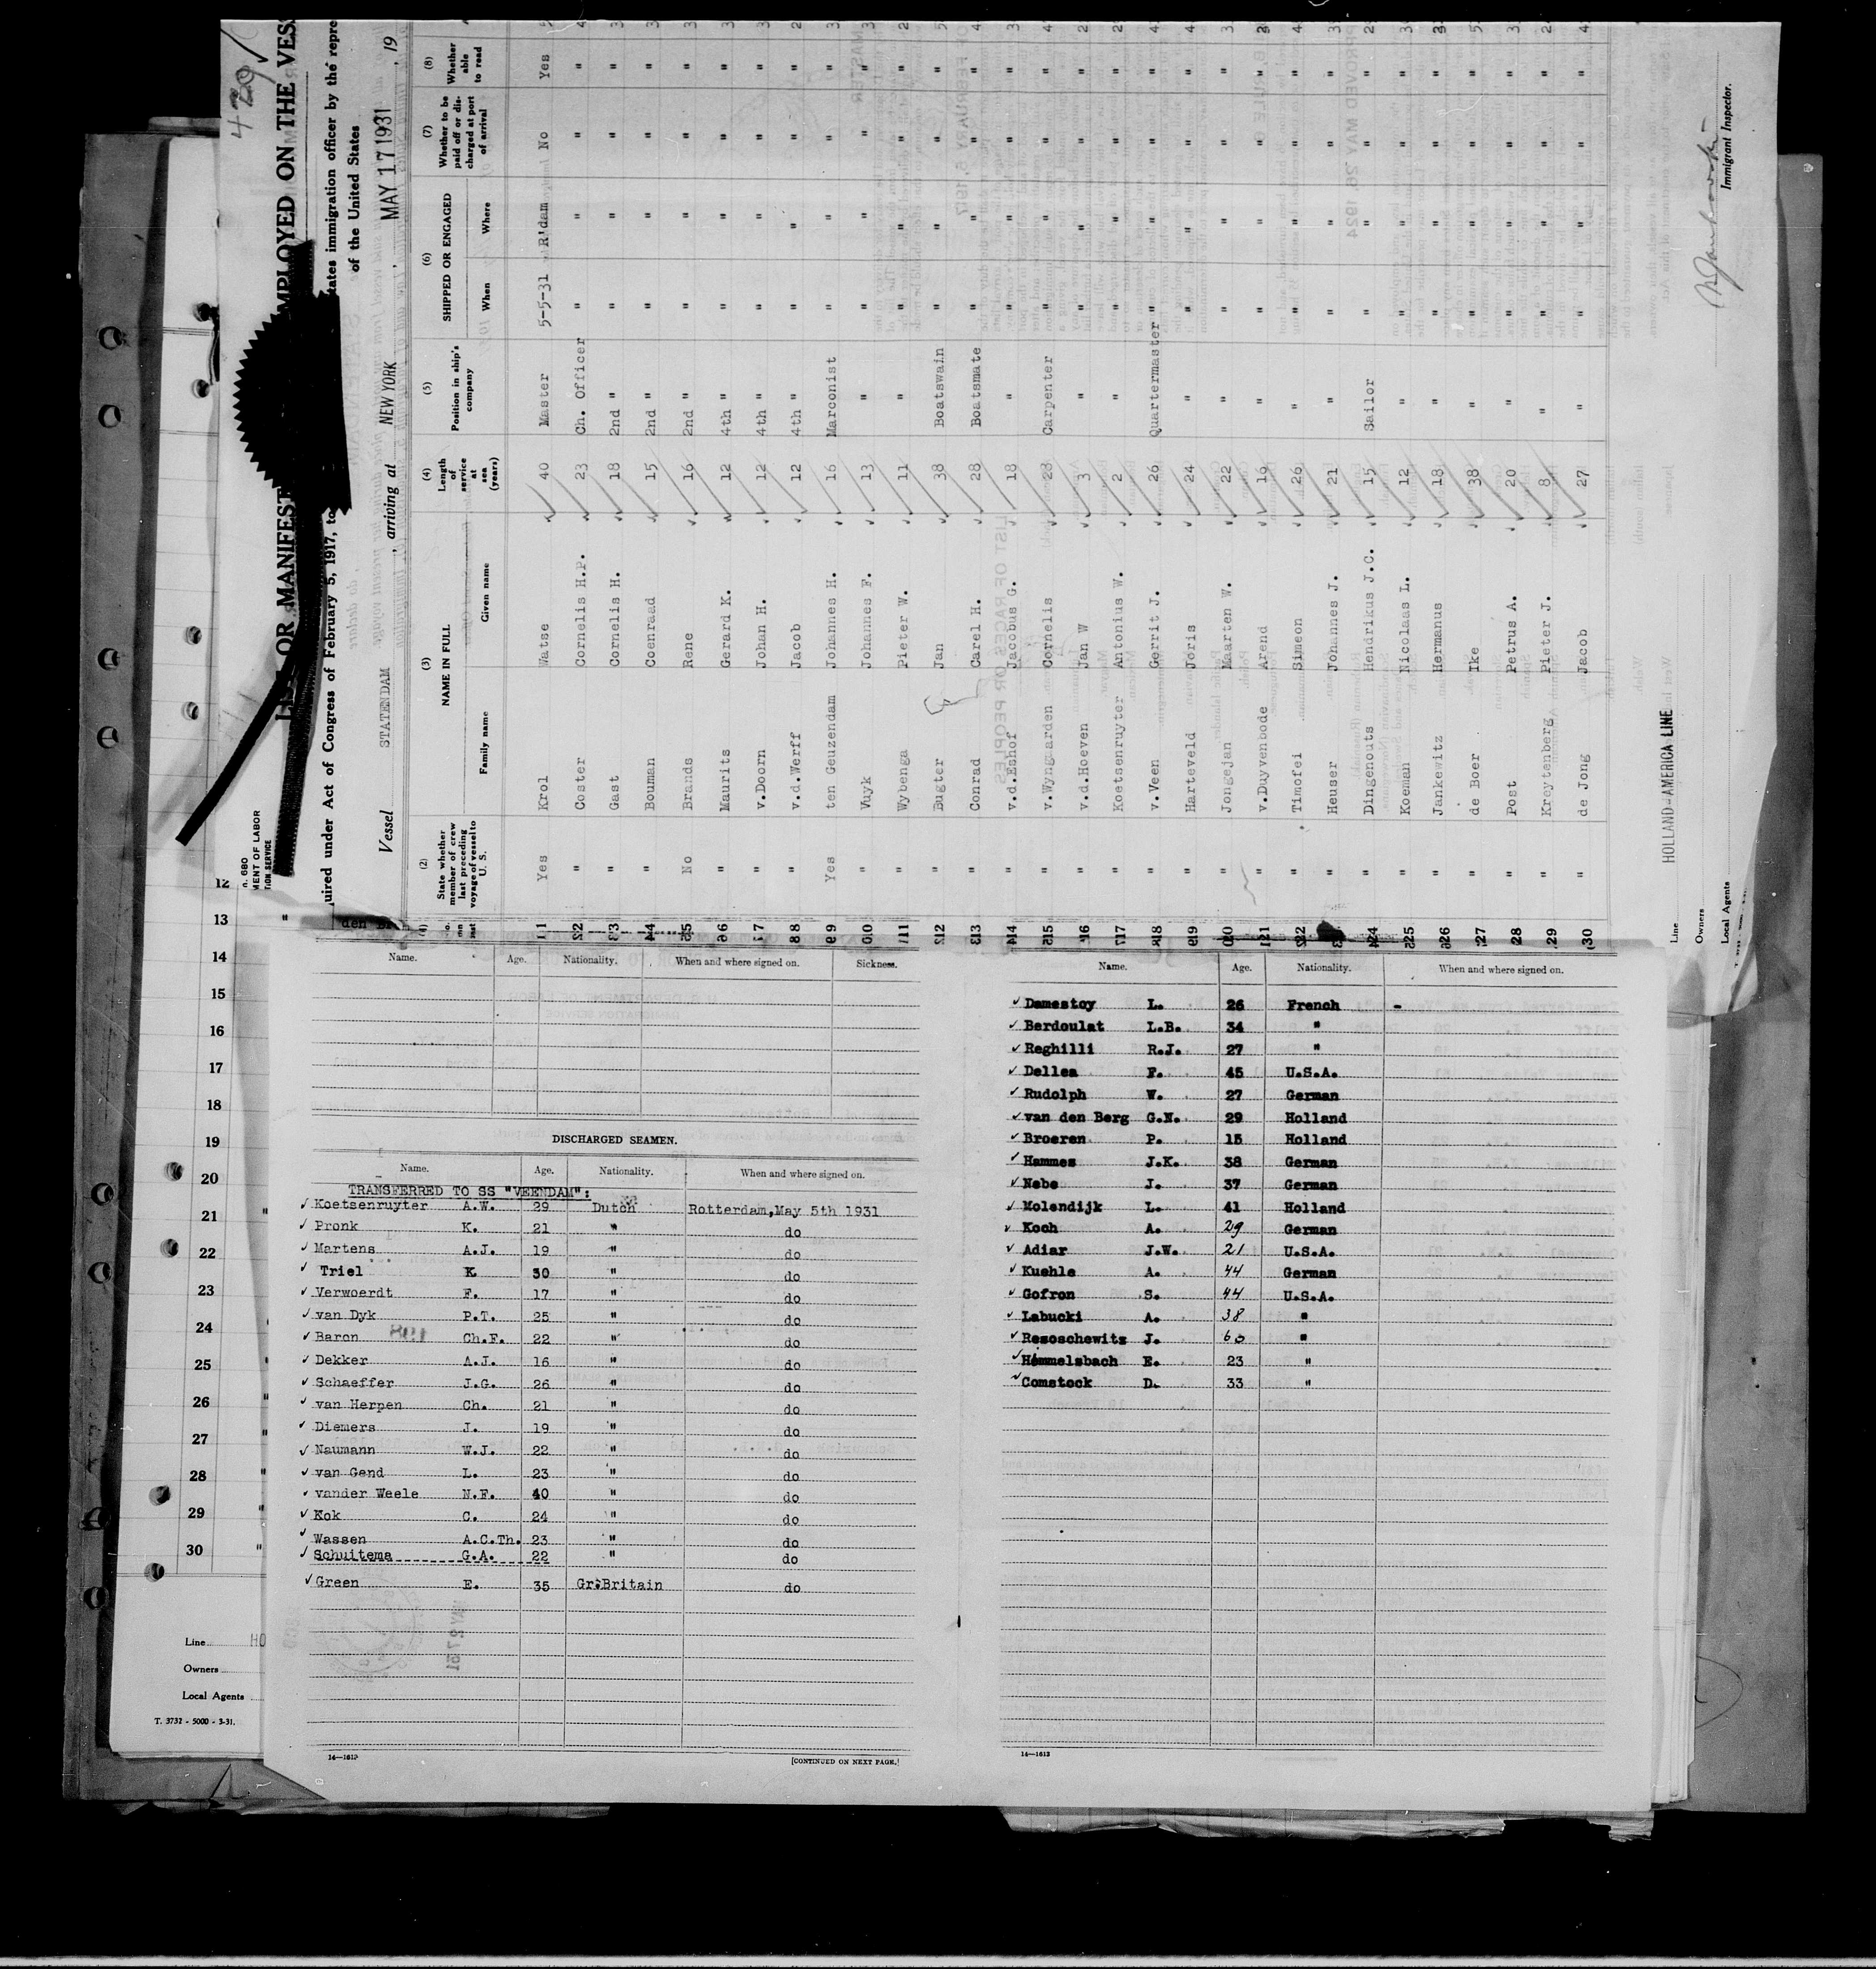 4
LIST OR MANIFEST
MPLOYED ON THE VES
uired under Act of Congress of February 5, 1917, to
tates immigration officer by the repre
of the United States
Vessel STATENDAM , arriving at NEW YORK , MAY 17 1931 , 19
n. 680
MENT OF LABOR
TION SERVICE
(2) State whether member of crew last preceding voyage of vessel to U. S.
(3) NAME IN FULL
Family name Given name
(4) Length of service at sea (years)
(5) Position in ship's company
(6) SHIPPED OR ENGAGED
When Where
(7) Whether to be paid off or discharged at port of arrival
(8) Whether able to read
1 Yes Krol Watse 40 Master 5-5-31 R'dam No Yes
2 " Coster Cornelis H.P. 23 Ch. Officer " " " "
3 " Gast Cornelis H. 18 2nd " " " " "
4 " Bouman Coenraad 15 2nd " " " " "
5 No Brands Rene 16 2nd " " " " "
6 " Maurits Gerard K. 12 4th " " " " "
7 " v.Doorn Johan H. 12 4th " " " " "
8 " v.d.Werff Jacob 12 4th " " " " "
9 Yes ten Geuzendam Johannes H. 16 Marconist " " " "
10 " Vuyk Johannes F. 13 " " " " "
11 " Wybenga Pieter W. 11 " " " " "
12 " Bugter Jan 38 Boatswain " " " "
13 " Conrad Carel H. 28 Boatsmate " " " "
14 " v.d.Eshof Jacobus G. 18 " " " " "
15 " v.Wyngaarden Cornelis 28 Carpenter " " " "
16 " v.d.Hoeven Jan W 3 " " " " "
17 " Koetsenruyter Antonius W. 2 " " " " "
18 " v.Veen Gerrit J. 26 Quartermaster " " " "
19 " Harteveld Joris 24 " " " " "
20 " Jongejan Maarten W. 22 " " " " "
21 " v.Duyvenbode Arend 19 " " " " "
22 " Timofei Simeon 26 " " " " "
23 " Heuser Johannes J. 21 " " " " "
24 " Dingenouts Hendrikus J.C. 15 Sailor " " " "
25 " Koeman Nicolaas L. 12 " " " " "
26 " Jankewitz Hermanus 18 " " " " "
27 " de Boer Ike 38 " " " " "
28 " Post Petrus A. 20 " " " " "
29 " Kreytenberg Pieter J. 8 " " " " "
30 " de Jong Jacob 27 " " " " "
Line HOLLAND-AMERICA LINE
Owners
Local Agents
Immigrant Inspector.
12
13
14
15
16
17
18
19
20
21
22
23
24
25
26
27
28
29
30
Line HO
Owners
Local Agents
T. 3732 - 5000 - 3-31.
Name. Age. Nationality. When and where signed on. Sickness.
DISCHARGED SEAMEN.
Name. Age. Nationality. When and where signed on.
TRANSFERRED TO SS "VEENDAM":
Koetsenruyter A.W. 29 Dutch Rotterdam,May 5th 1931
Pronk K. 21 " do
Martens A.J. 19 " do
Triel K 30 " do
Verwoerdt F. 17 " do
van Dyk P.T. 25 " do
Baron Ch.F. 22 " do
Dekker A.J. 16 " do
Schaeffer J.G. 26 " do
van Herpen Ch. 21 " do
Diemers J. 19 " do
Naumann W.J. 22 " do
van Gend L. 23 " do
vander Weele N.F. 40 " do
Kok C. 24 " do
Wassen A.C.Th. 23 " do
Schuitema G.A. 22 " do
Green E. 35 Gr.Britain do
14—1612
[CONTINUED ON NEXT PAGE.]
Name. Age. Nationality. When and where signed on.
Damestoy L. 26 French -
Berdoulat L.B. 34 "
Reghilli R.J. 27 "
Dellea F. 45 U.S.A.
Rudolph W. 27 German
van den Berg G.N. 29 Holland
Broeren P. 15 Holland
Hammes J.K. 38 German
Nebe J. 37 German
Molendijk L. 41 Holland
Koch A. 29 German
Adiar J.W. 21 U.S.A.
Kuehle A. 44 German
Gofron S. 44 U.S.A.
Labucki A. 38 "
Resoschewitz J. 60 "
Hemmelsbach E. 23 "
Comstock D. 33 "
14—1612